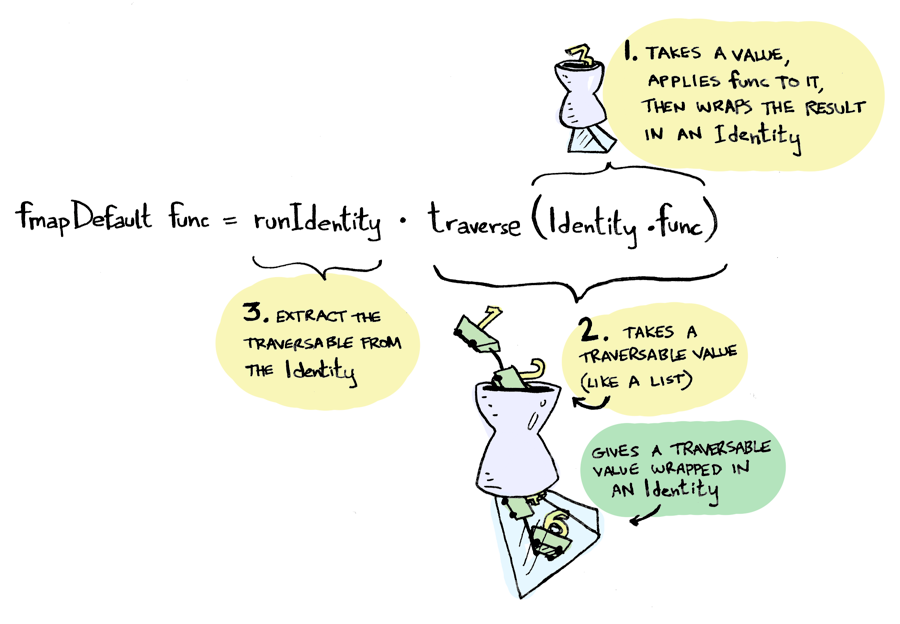 3
1. TAKES A VALUE,
APPLIES func TO IT,
THEN WRAPS THE RESULT
IN AN Identity
fmapDefault func = runIdentity . traverse (Identity . func)
3. EXTRACT THE
TRAVERSABLE FROM
THE Identity
1
2
2. TAKES A
TRAVERSABLE VALUE
(LIKE A LIST)
GIVES A TRAVERSABLE
VALUE WRAPPED IN
AN Identity
6